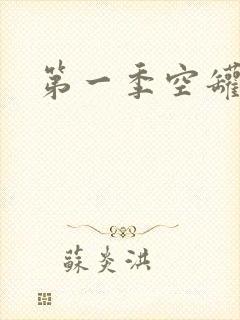 第一季空罐
蘇炎洪